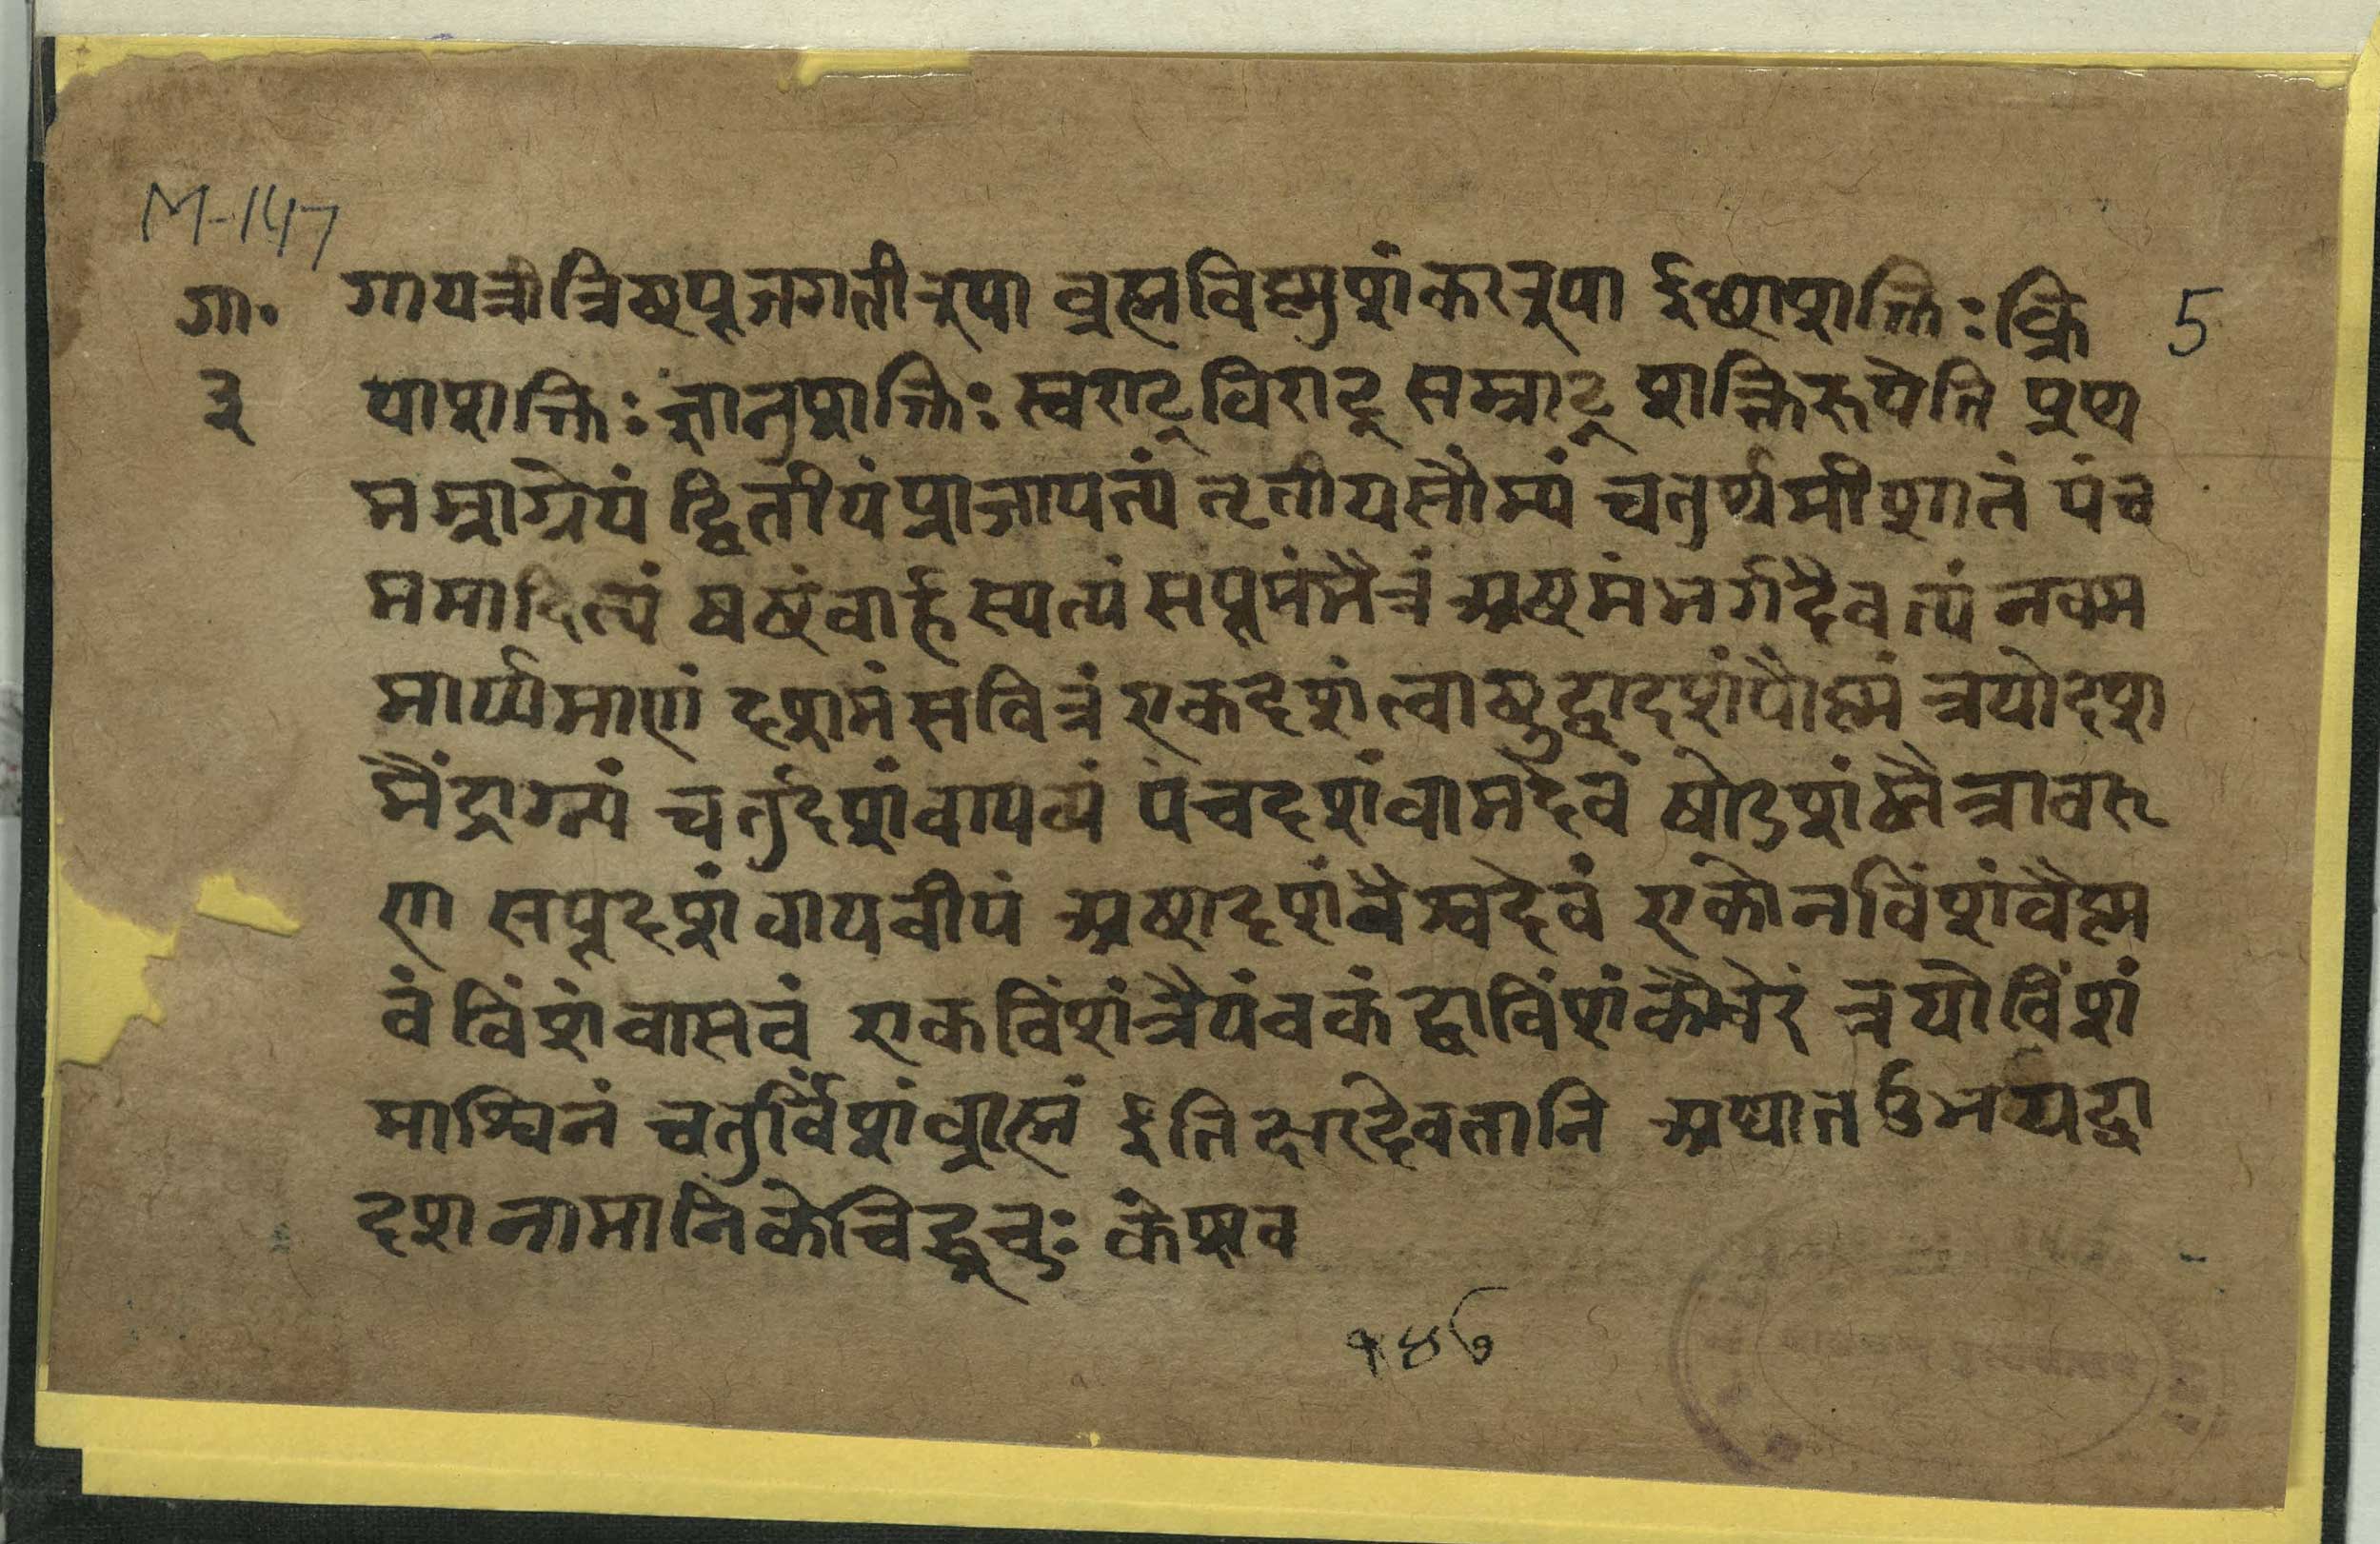 M-147
गायत्रीत्रिष्टुप्जगतीरुपा ब्रह्मविष्णुशंकररुपा ईछाशक्तिः क्रि
गा॰
5
३
याशक्तिः ज्ञानशक्तिः स्वराट्विराट् सम्राट् शक्तिरूपेति प्रथ
मम्राग्नेयं द्वितीयंप्राजापत्यं तृतीयसौम्यं चतुर्थमीशानं पंच
ममादित्यं षष्ठंवार्हस्पत्यं सप्तमंमैत्रं अष्टमंभर्गदैवत्यं नवम
मार्य्यमाणं दशमंसवित्रं एकदशंत्वाष्टुद्वादशंपौष्मं त्रयोदश
मैंद्राग्न्यं चर्तुदशंवायव्यं पंचदशंवामदेवं षोडशंमैत्रावरु
ण सप्तदशंवायवीयं अष्टादशंवैश्वदेवं एकोनविंशंवैष्म
वं विंशंवासवं एकविंशंत्रैयंवकं द्वाविंशंकौवेरं त्रयोविंशं
माश्विनं चतुर्विंशंब्राह्मं ईतिक्षरदेवतानि अथात उभयद्वा
दश नामानिकेचिद्रुचुः केशव
१४७